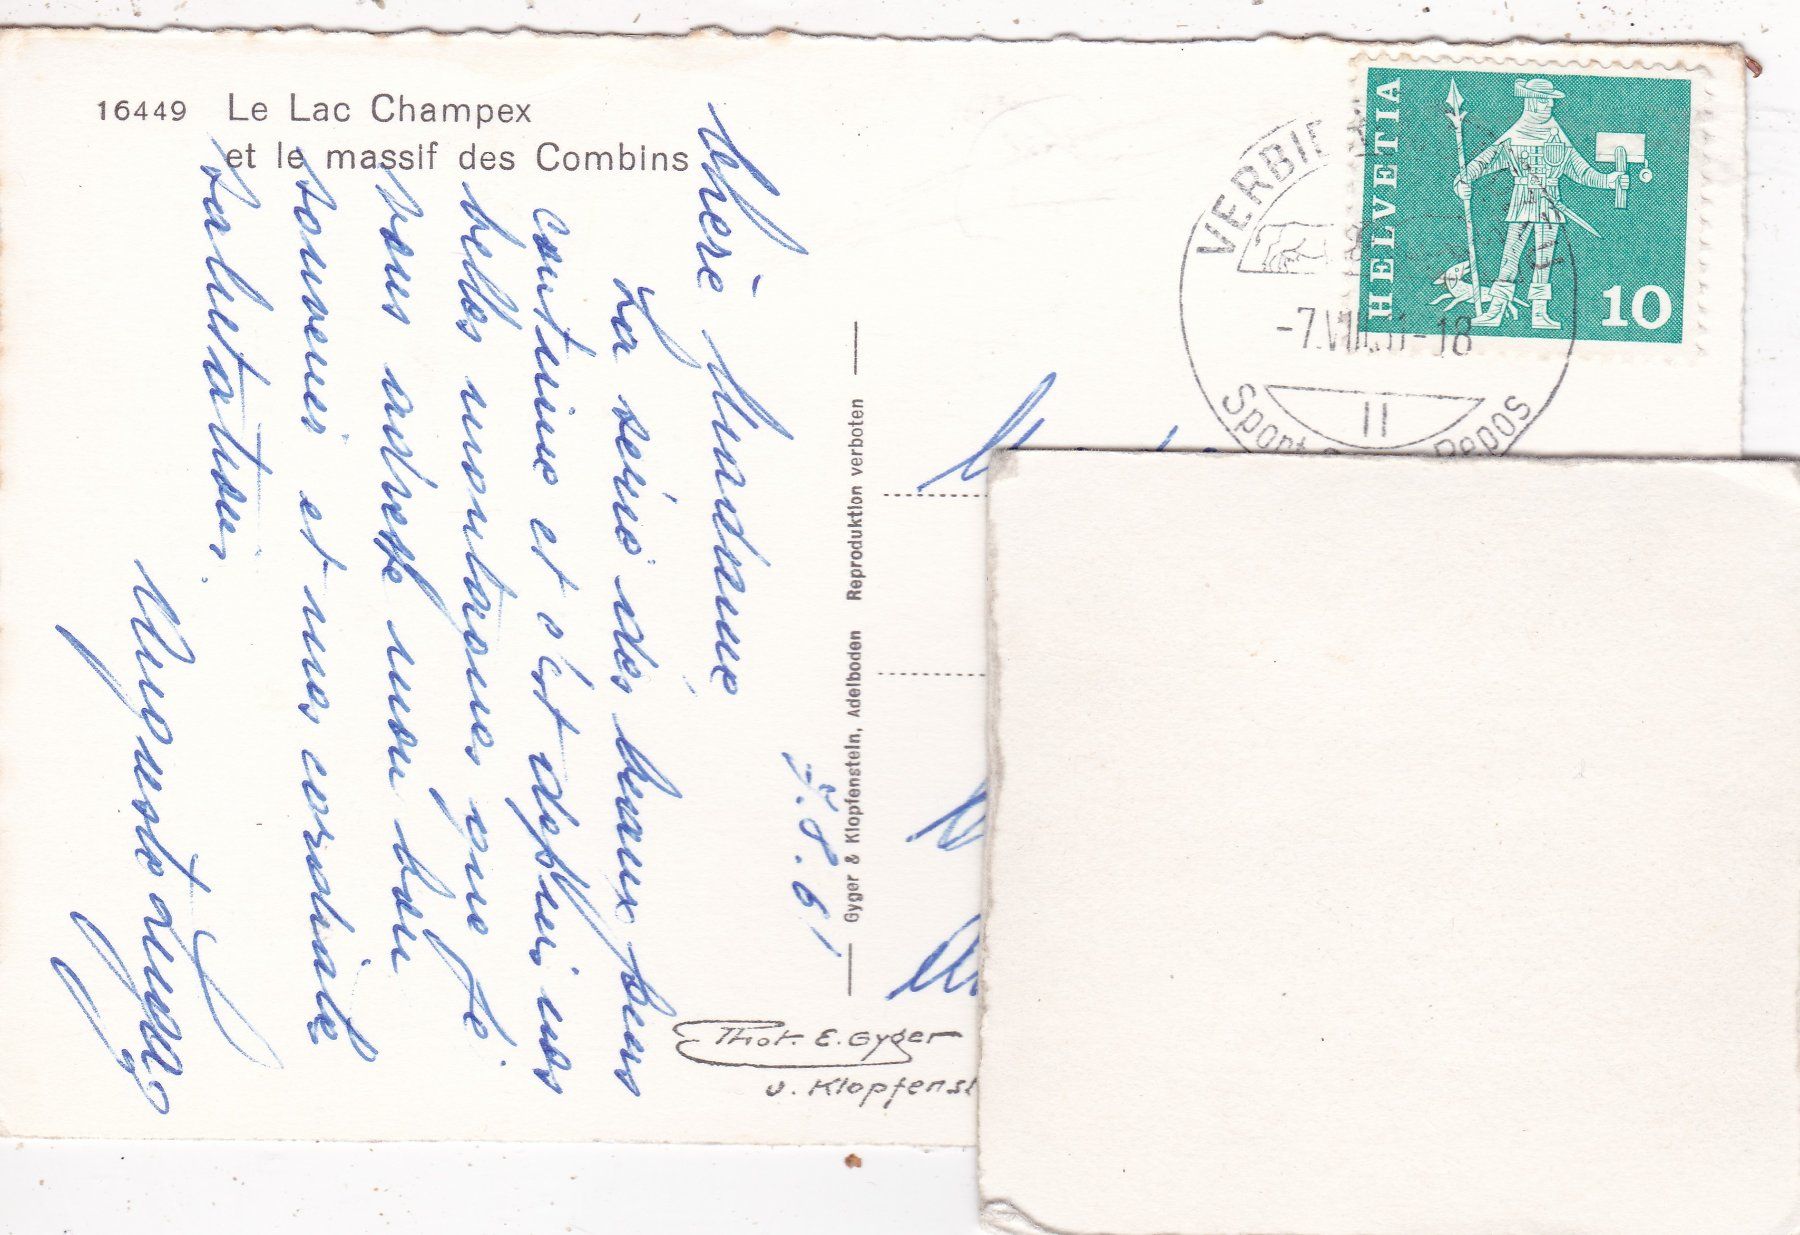 16449 Le Lac Champex
et le massif des Combins
7.8.61
Chère Madame
La série des beaux jours
continue et c'est depuis nos
belles montagnes que je
vous adresse mon bon
souvenir et mes cordiale
salutation.
Gyger & Klopfenstein, Adelboden Reproduktion verboten
Phot. E. Gyger
u. Klopfenst
HELVETIA
10
VERBIE
-7.VIII.61-18
Sport Repos